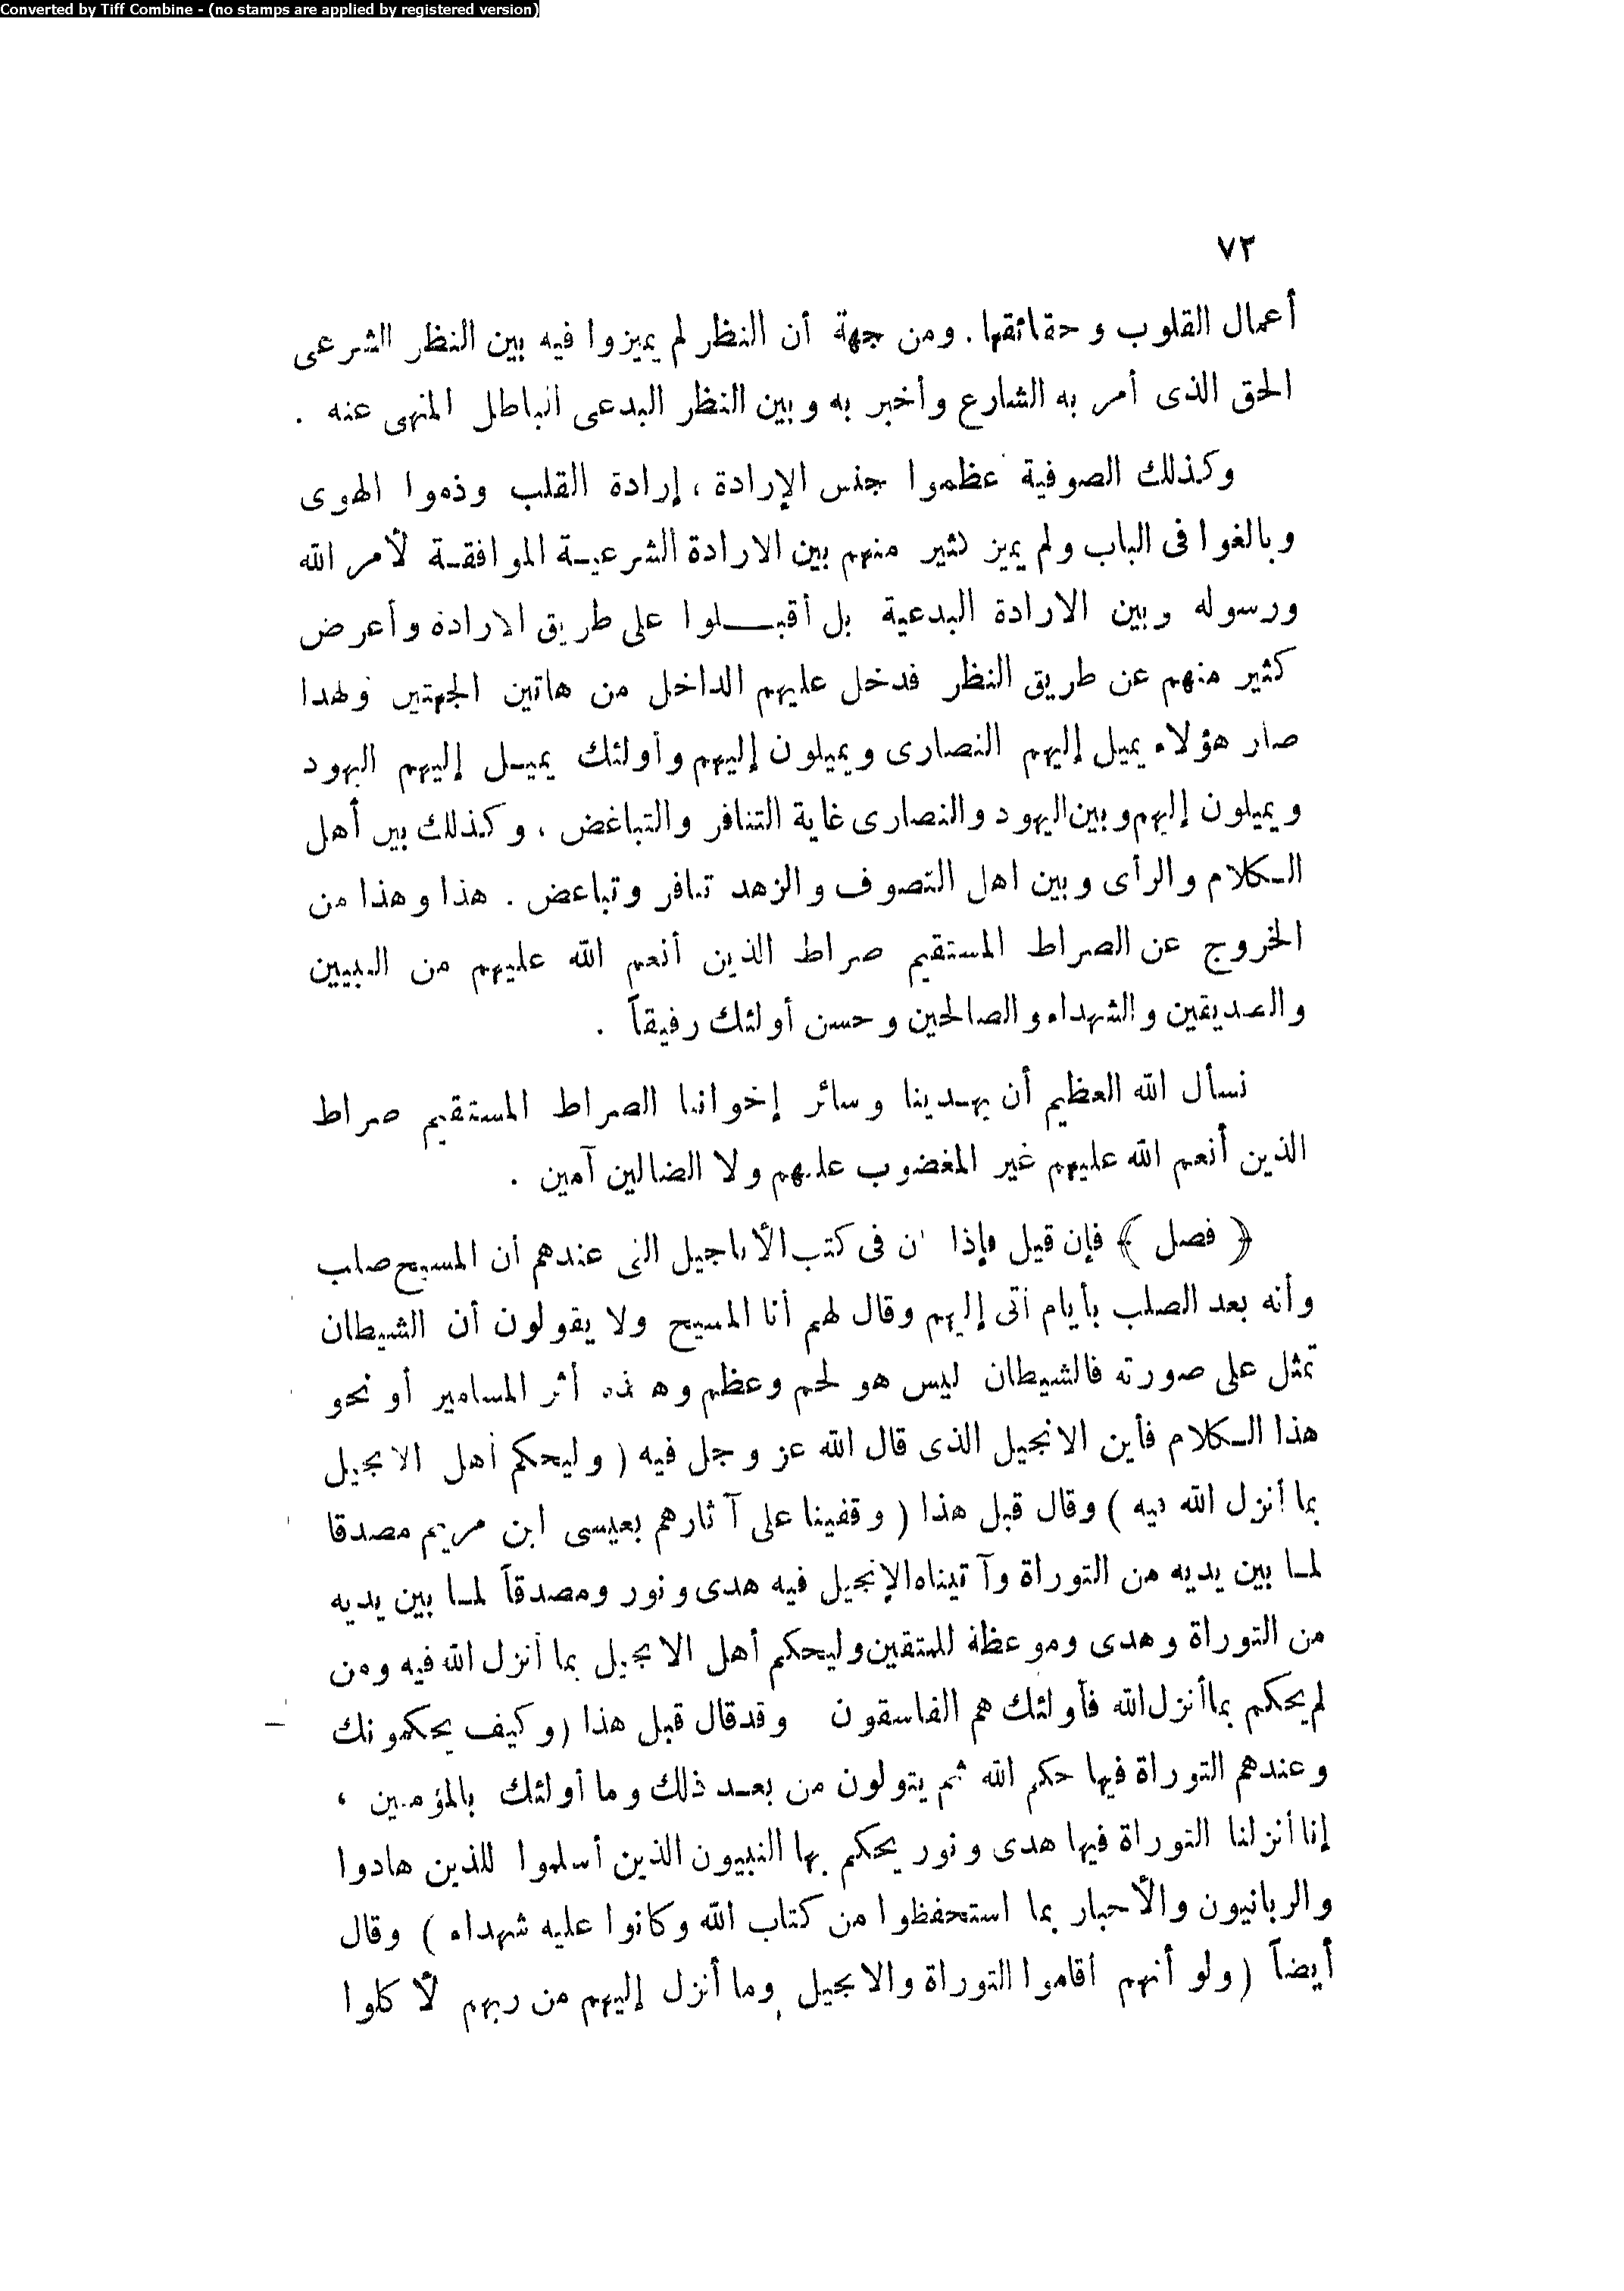 Converted by Tiff Combine - (no stamps are applied by registered version)
٧٣
أعمال القلوب وحقائقها. ومن جهة أن النظر لم يميزوا فيه بين النظر الشرعى
الحق الذى أمر به الشارع وأخبر به وبين النظر البدعى الباطل المنهى عنه .
وكذلك الصوفية عظموا جنس الإرادة ، إرادة القلب وذموا الهوى
وبالغوا فى الباب ولم يميز كثير منهم بين الارادة الشرعية الموافقة لأمر الله
ورسوله وبين الارادة البدعية بل أقبلوا على طريق الارادة وأعرض
كثير منهم عن طريق النظر فدخل عليهم الداخل من هاتين الجهتين ولهذا
صار هؤلاء يميل إليهم النصارى ويميلون إليهم وأولئك يميل إليهم اليهود
ويميلون إليهم وبين اليهود والنصارى غاية التنافر والتباغض ، وكذلك بين أهل
الكلام والرأى وبين اهل التصوف والزهد تنافر وتباغض . هذا وهذا من
الخروج عن الصراط المستقيم صراط الذين أنعم الله عليهم من النبيين
والصديقين والشهداء والصالحين وحسن أولئك رفيقاً .
نسأل الله العظيم أن يهدينا وسائر إخواننا الصراط المستقيم صراط
الذين أنعم الله عليهم غير المغضوب عليهم ولا الضالين آمين .
﴿ فصل ﴾ فإن قيل فإذا كان فى كتب الأناجيل التى عندهم أن المسيح صلب
وأنه بعد الصلب بأيام أتى إليهم وقال لهم أنا المسيح ولا يقولون أن الشيطان
تمثل على صورته فالشيطان ليس هو لحم وعظم وهذه أثر المسامير أو نحو
هذا الكلام فأين الانجيل الذى قال الله عز وجل فيه ( وليحكم أهل الانجيل
بما أنزل الله فيه ) وقال قبل هذا ( وقفينا على آثارهم بعيسى ابن مريم مصدقا
لما بين يديه من التوراة وآتيناه الإنجيل فيه هدى ونور ومصدقاً لما بين يديه
من التوراة وهدى وموعظة للمتقين وليحكم أهل الانجيل بما أنزل الله فيه ومن
لم يحكم بما أنزل الله فأولئك هم الفاسقون وقد قال قبل هذا (وكيف يحكمونك
وعندهم التوراة فيها حكم الله ثم يتولون من بعد ذلك وما أولئك بالمؤمنين ،
إنا أنزلنا التوراة فيها هدى ونور يحكم بها النبيون الذين أسلموا للذين هادوا
والربانيون والأحبار بما استحفظوا من كتاب الله وكانوا عليه شهداء ) وقال
أيضاً (ولو أنهم أقاموا التوراة والانجيل وما أنزل إليهم من ربهم لأكلوا